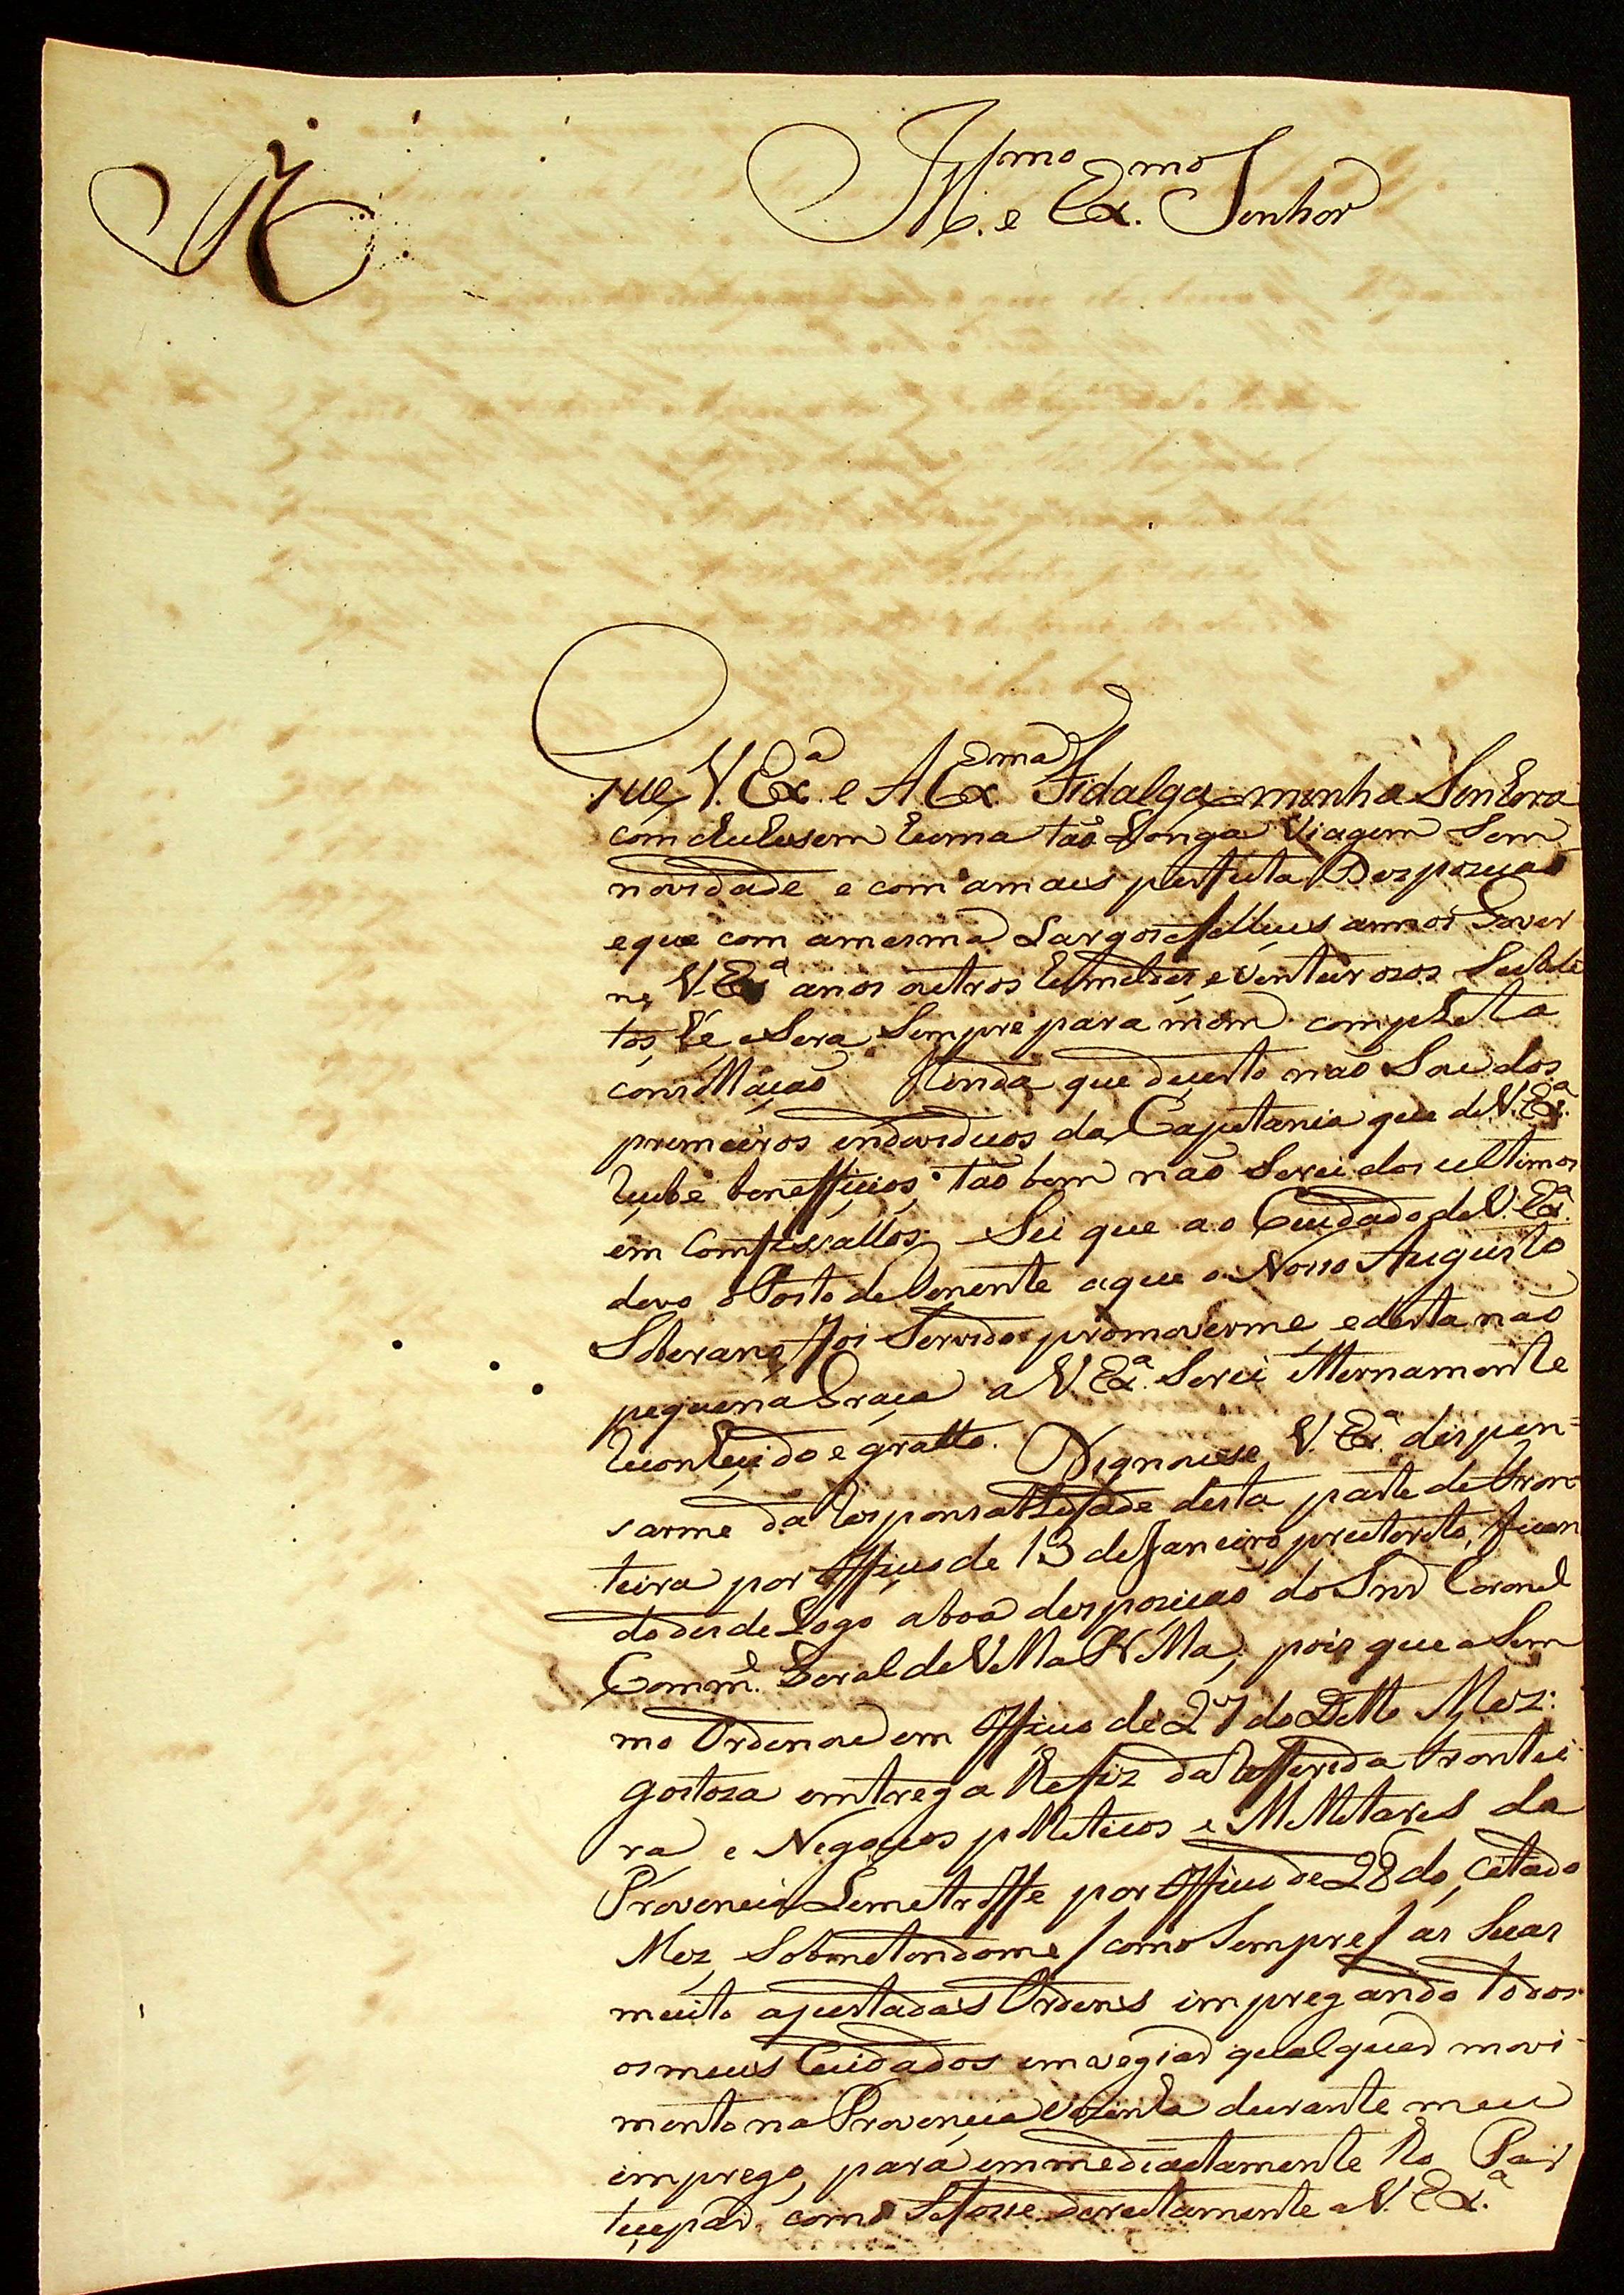 Ill.mo e Ex.mo Senhor
Que V. Ex.a e A Ex.ma Fidalga minha Senhora
comcluhisem huma tão Longa Viagem Sem
novidade e com amais perfeita Despozicaõ
eque com amesma Largos e fellices annos Gover
ne V. Ex.a anos outros humeldes e Venturozos Subdi
tos, hé e Sera Sempre para mim completa
comsollaçaõ Ainda que decerto naõ Sou dos
premeiros endeviduos da Capitania que de V. Ex.a
recebe beneffiçios; taõ bem naõ Serei dos ultimos
em comfesallos. Sei que ao Cuidado de V. Ex.a
devo o Posto de Tenente aque o Nosso Augusto
Soberano foi Servido promoverme, e desta naõ
pequena Graça a V. Ex.a Serei etternamente
reconheçido e gratto. Dignouse V. Ex.a dispen=
sarme da responsabelidade desta parte de Fron
teira por Officio de 13 de Janeiro preterito, fican
do desde Logo aboa despozicaõ do Snr Coronel
Comm.e Geral de Villa Bella; pois que o Sum
mo Ordenou em Officio de 27 do Ditto Mez:
gostoza emtrega lhe fiz da refferida Frontei
ra e Negocios polliticos e Millitares da
Provencia Lemetroffe por Officio de 28 do Citado
Mez, Sobmetendome / como Sempre / as Suas
muito ajustadas Ordens impregando todos
os meus Cuidados em vegiar qualquer movi
mento na Provençia vezinha durante meu
imprego, para emmediactamente lho Par
teçepar, como Sefosse derectamente a V. Ex.a